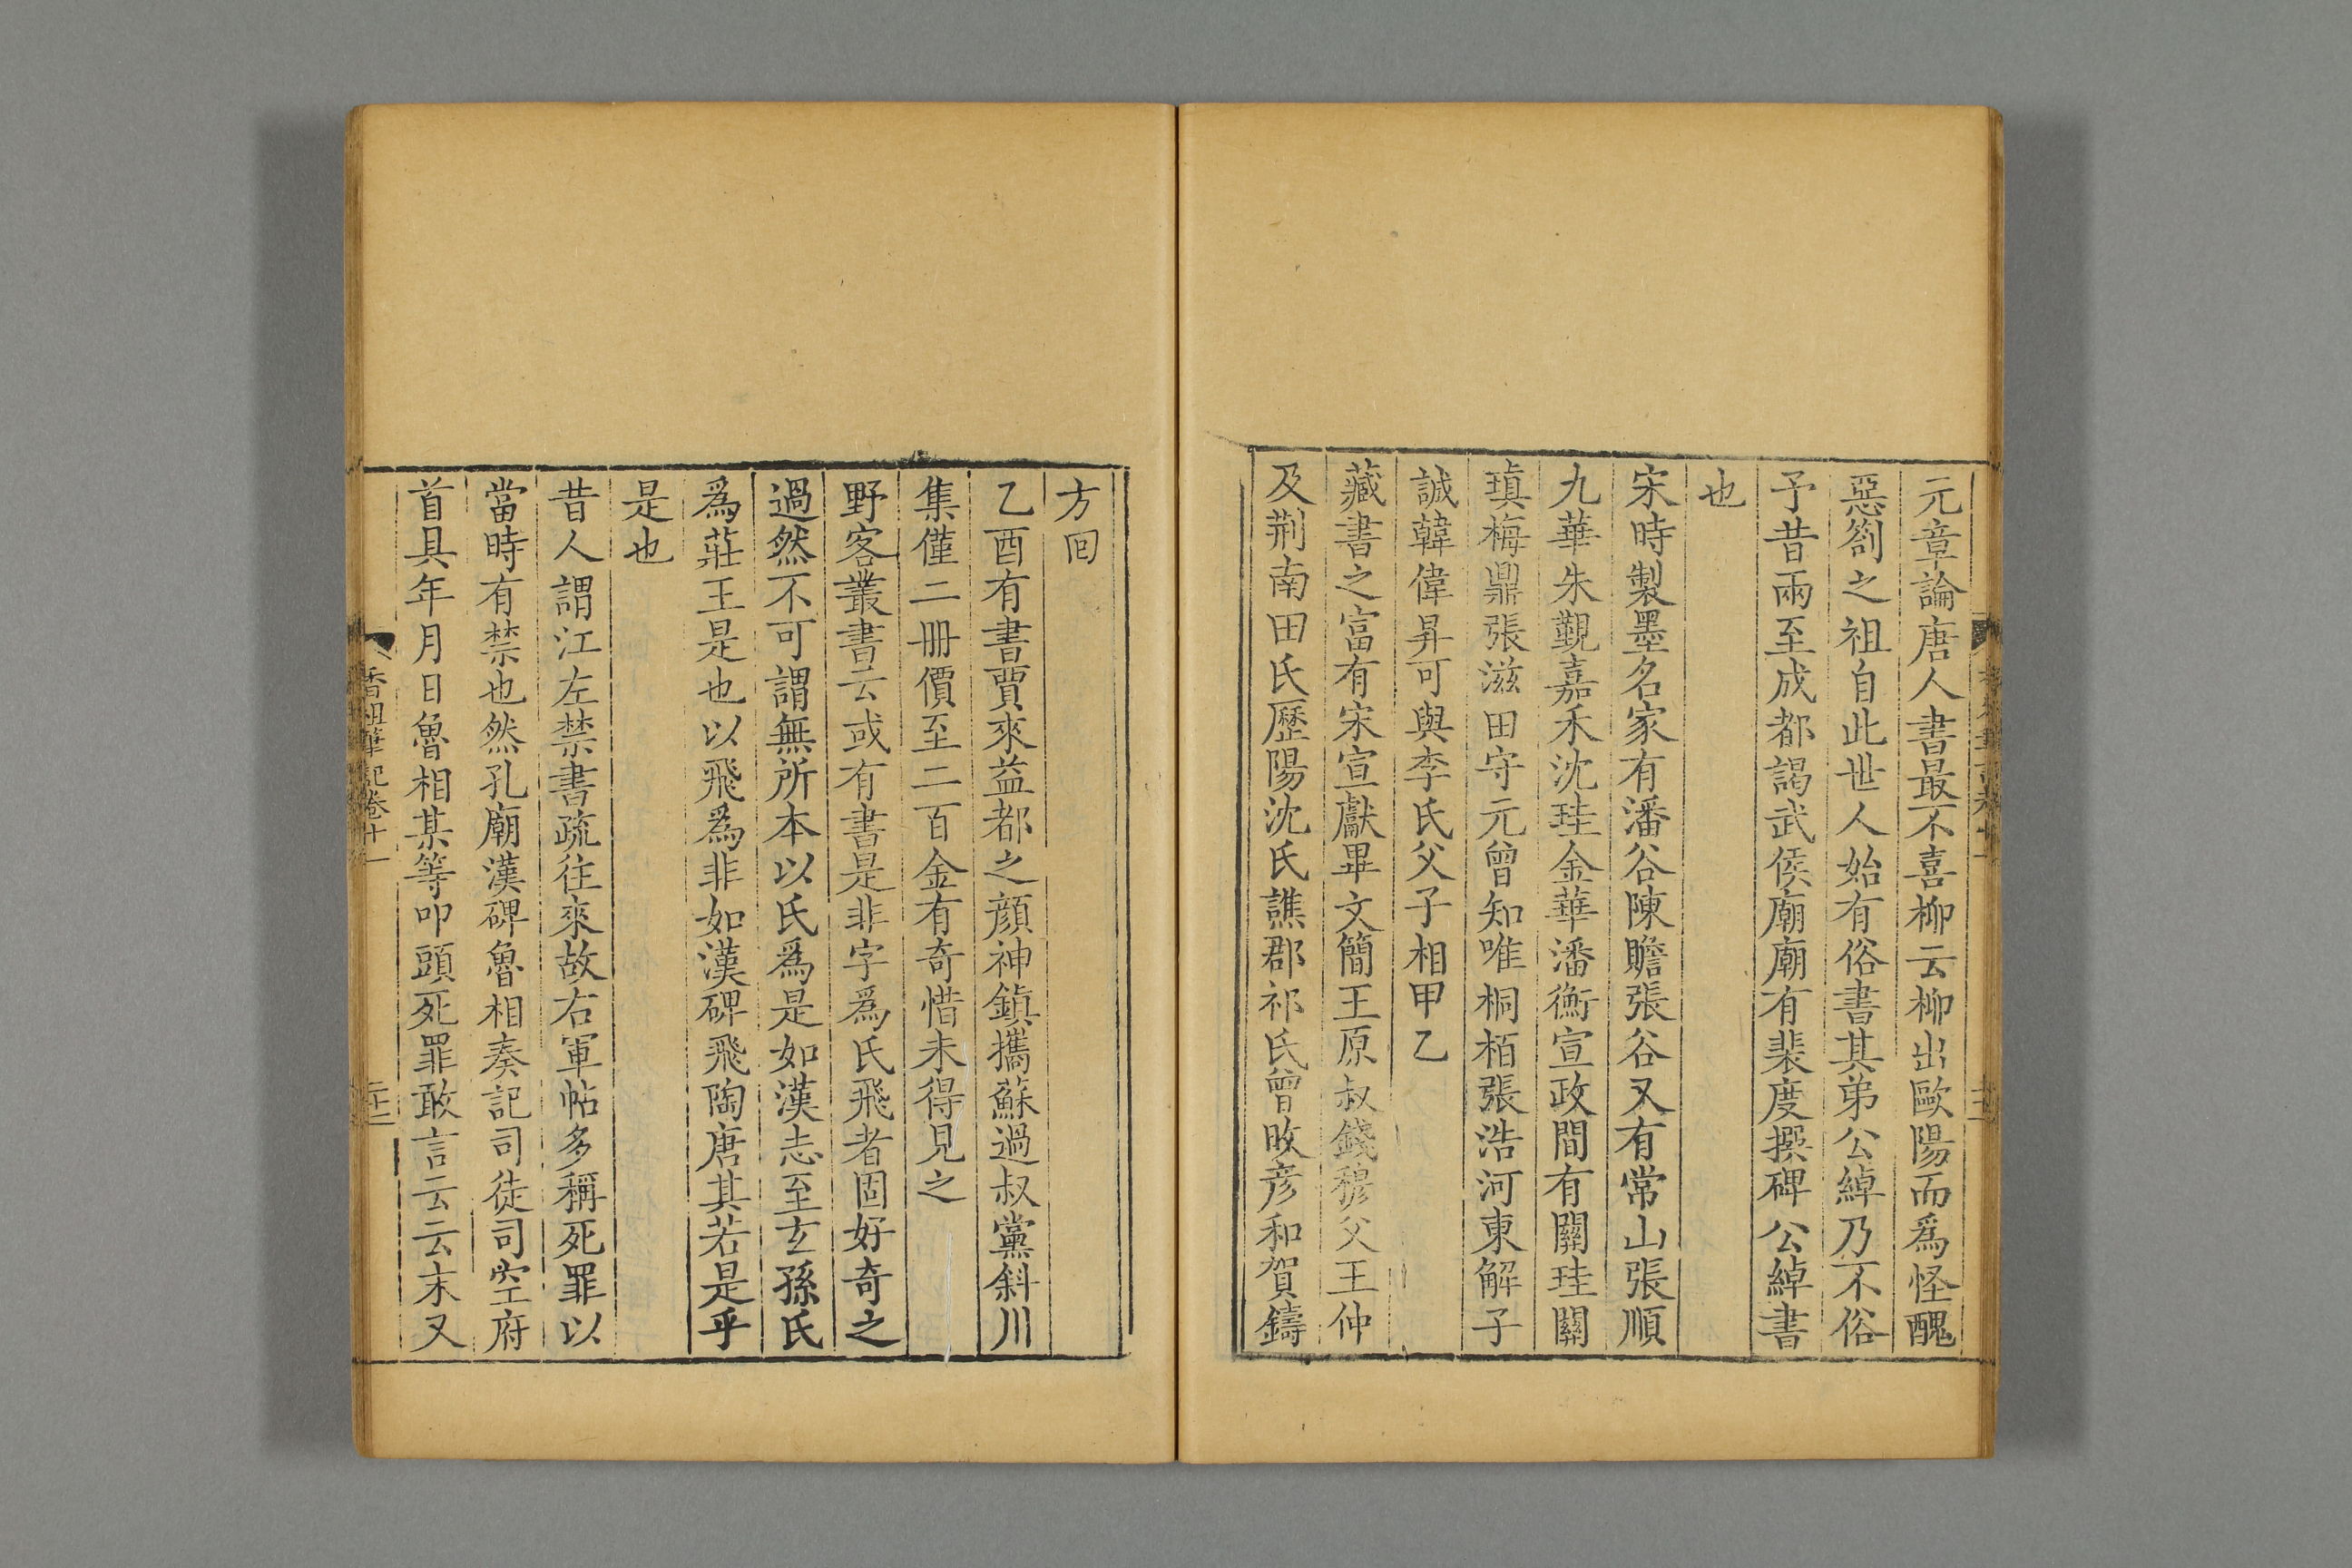 元章論唐人書最不喜柳云柳出歐陽而爲怪醜
惡劄之祖自此世人始有俗書其弟公綽乃不俗
予昔兩至成都謁武侯廟廟有裴度撰碑公綽書
也
宋時製墨名家有潘谷陳贍張谷又有常山張順
九華朱覲嘉禾沈珪金華潘衡宣政間有關珪關
瑱梅鼎張滋田守元曾知唯桐栢張浩河東解子
誠韓偉昇可與李氏父子相甲乙
藏書之富有宋宣獻畢文簡王原叔錢穆父王仲
及荆南田氏歷陽沈氏譙郡祁氏曾旼彦和賀鑄
方回
乙酉有書賈來益都之顔神鎮攜蘇過叔黨斜川
集僅二冊價至二百金有奇惜未得見之
野客叢書云或有書是非字爲氏飛者固好奇之
過然不可謂無所本以氏爲是如漢志至玄孫氏
爲莊王是也以飛爲非如漢碑飛陶唐其若是乎
是也
昔人謂江左禁書疏往來故右軍帖多稱死罪以
當時有禁也然孔廟漢碑魯相奏記司徒司空府
首具年月日魯相某等叩頭死罪敢言云云末又
香祖筆記卷十一
二十二